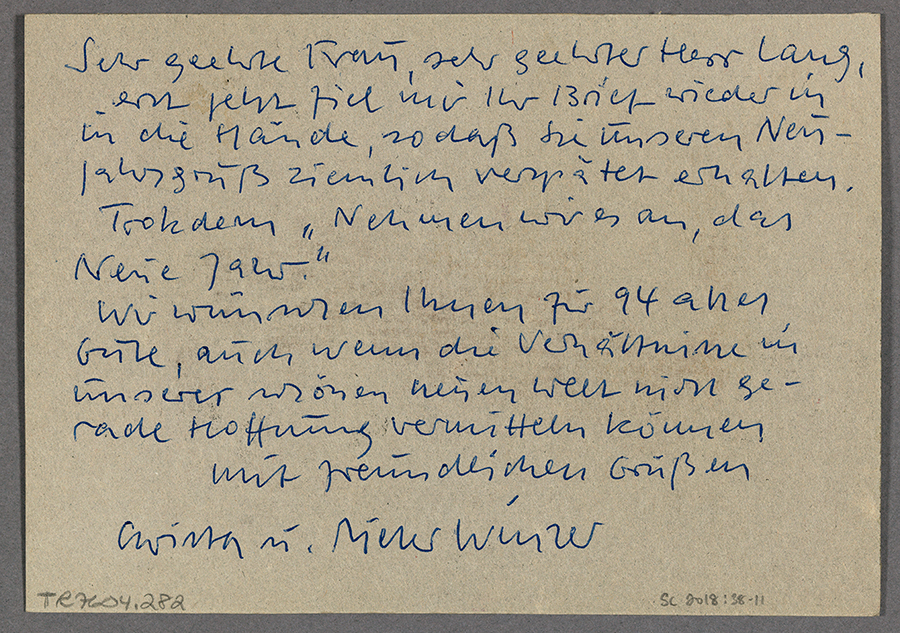 Sehr geehrte Frau, sehr geehrter Herr Lang,
erst jetzt fiel mir Ihr Brief wieder in
in die Hände, sodaß Sie unseren Neu-
jahrsgruß ziemlich verspätet erhalten.
Trotzdem „Nehmen wir es an, das
Neue Jahr."
Wir wünschen Ihnen für 94 alles
Gute, auch wenn die Verhältnisse in
unserer schönen neuen Welt nicht ge-
rade Hoffnung vermitteln können
mit freundlichen Grüßen
Christa u. Dieter
TR7604.282
SC 2018:38-11